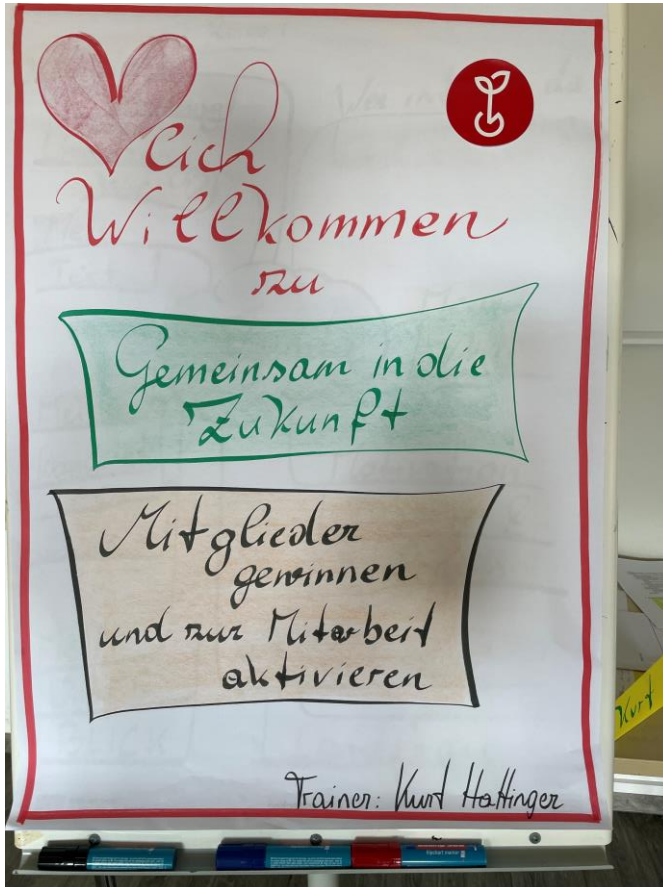 lich
Willkommen
zu
Gemeinsam in die
Zukunft
Mitglieder
gewinnen
und zur Mitarbeit
aktivieren
Trainer: Kurt Hattinger
Kurt